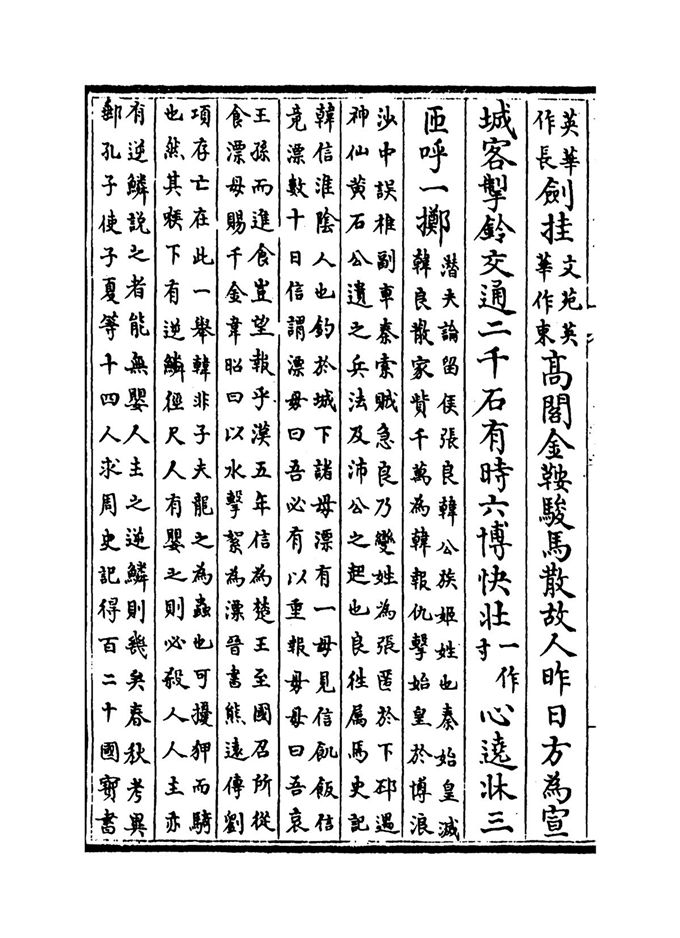 英華作長劍挂文苑英華作東高閣金鞍駿馬散故人昨日方為宣
城客掣鈴交通二千石有時六博快壯一作寸心遶牀三
匝呼一擲潛夫論留侯張良韓公族姬姓也秦始皇滅
韓良散家貲千萬為韓報仇擊始皇於博浪
沙中誤椎副車秦索賊急良乃變姓為張匿於下邳遇
神仙黄石公遺之兵法及沛公之起也良徃屬焉史記
韓信淮陰人也釣於城下諸母漂有一母見信飢飯信
竟漂數十日信謂漂母曰吾必有以重報母母曰吾哀
王孫而進食豈望報乎漢五年信為楚王至國召所從
食漂母賜千金韋昭曰以水擊絮為漂晉書熊遠傳劉
項存亡在此一舉韓非子夫龍之為蟲也可擾狎而騎
也然其喉下有逆鱗徑尺人有嬰之則必殺人人主亦
有逆鱗說之者能無嬰人主之逆鱗則幾矣春秋考異
郵孔子使子夏等十四人求周史記得百二十國寳書